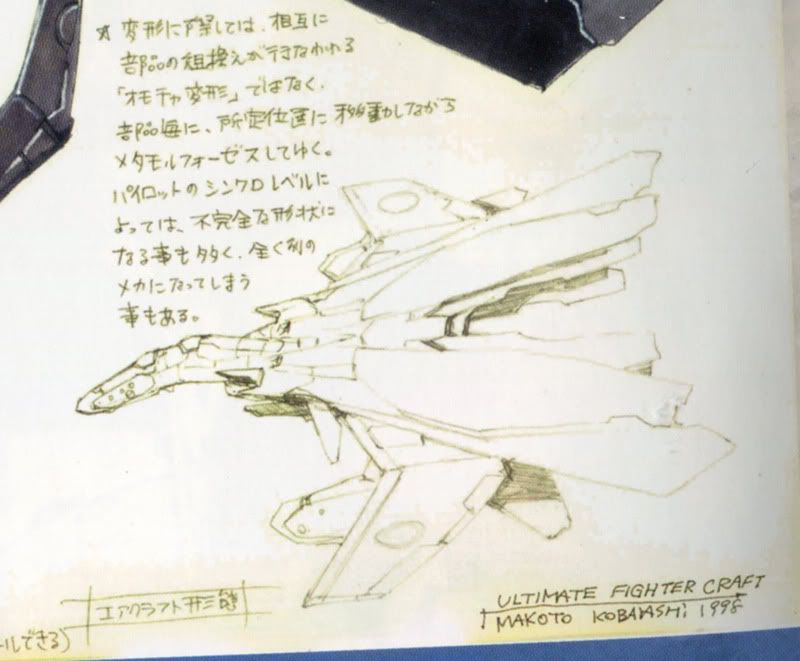 ☆ 変形に際しては、相互に
部品の組換えが行なわれる
「オモチャ変形」ではなく、
部品毎に、所定位置に移動しながら
メタモルフォーゼスしてゆく。
パイロットのシンクロレベルに
よっては、不完全な形状に
なる事も多く、全く別の
メカになってしまう
事もある。
エアクラフト形態
ULTIMATE FIGHTER CRAFT
MAKOTO KOBAYASHI 1998
ルできる)